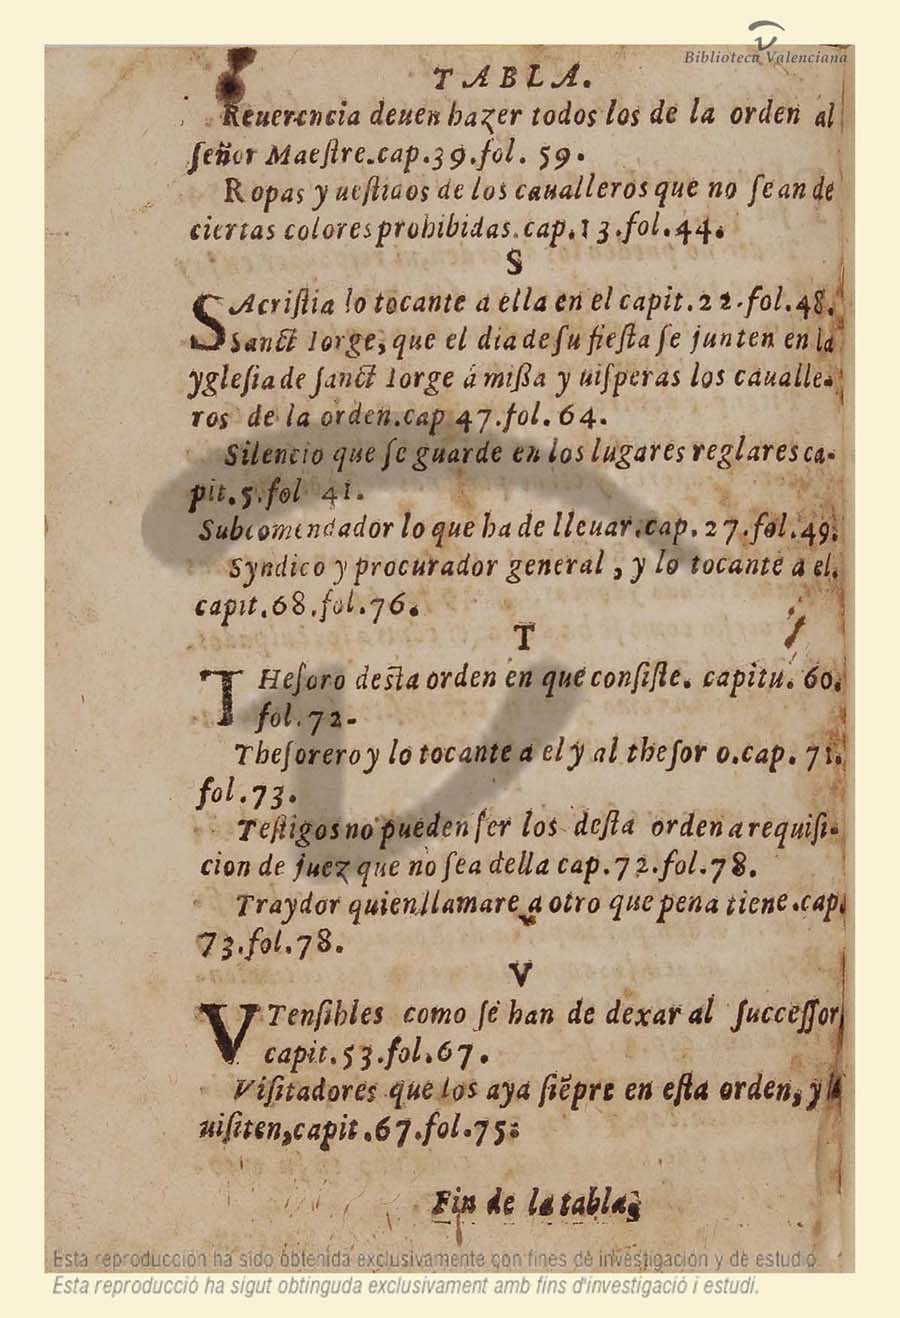 Biblioteca Valenciana
TABLA.
Reuerencia deuen hazer todos los de la orden al
ſeñor Maeſtre.cap.39.fol. 59.
Ropas y ueſtidos de los caualleros que no ſean de
ciertas colores prohibidas.cap.13.fol.44.
S
SAcriſtia lo tocante a ella en el capit.22.fol.48.
Sanct Iorge, que el dia de ſu fieſta ſe junten en la
ygleſia de ſanct Iorge á miſſa y uiſperas los caualle-
ros de la orden.cap 47.fol. 64.
Silencio que ſe guarde en los lugares reglares ca-
pit.5.fol 41.
Subcomendador lo que ha de lleuar.cap.27.fol.49.
Syndico y procurador general, y lo tocante a el.
capit.68.fol.76.
T
THeſoro deſta orden en que conſiſte. capitu. 60.
fol.72.
Theſorero y lo tocante a el y al theſor o.cap. 71.
fol.73.
Teſtigos no pueden ſer los deſta orden a requiſi-
cion de juez que no ſea della cap.72.fol.78.
Traydor quien llamare a otro que pena tiene.cap.
73.fol.78.
V
VTenſibles como ſe han de dexar al ſucceſſor
capit.53.fol.67.
Viſitadores que los aya ſiẽpre en eſta orden, y
uiſiten,capit.67.fol.75.
Fin de la tabla.
Esta reproducción ha sido obtenida exclusivamente con fines de investigación y de estudio.
Esta reproducció ha sigut obtinguda exclusivament amb fins d'investigació i estudi.